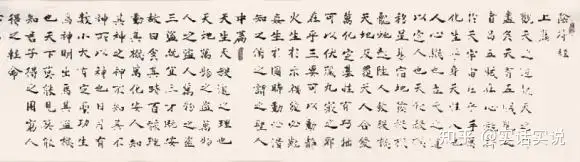 陰符經
上篇
觀天之道執天之行
盡矣天有五賊見之
者昌五賊在心施行
於天宇宙在乎手萬
化生乎身天性人也
人心機也立天之道
以定人也天發殺機
移星易宿地發殺機
龍蛇起陸人發殺機
天地反覆天人合發
萬化定基性有巧拙
可以伏藏九竅之邪
在乎三要可以動靜
火生於木禍發必剋
姦生於國時動必潰
知之修之謂之聖人
中篇
天生天殺道之理也
天地萬物之盜萬物
人之盜人萬物之盜
三盜既宜三才既安
故曰食其時百骸理
動其機萬化安人知
其神之神不知不
神所以神也日月有
數小大有定聖功生
焉神明出焉其盜機
也天下莫能見莫能
知君子得之固窮人
得之輕命
知乎 @实话实说